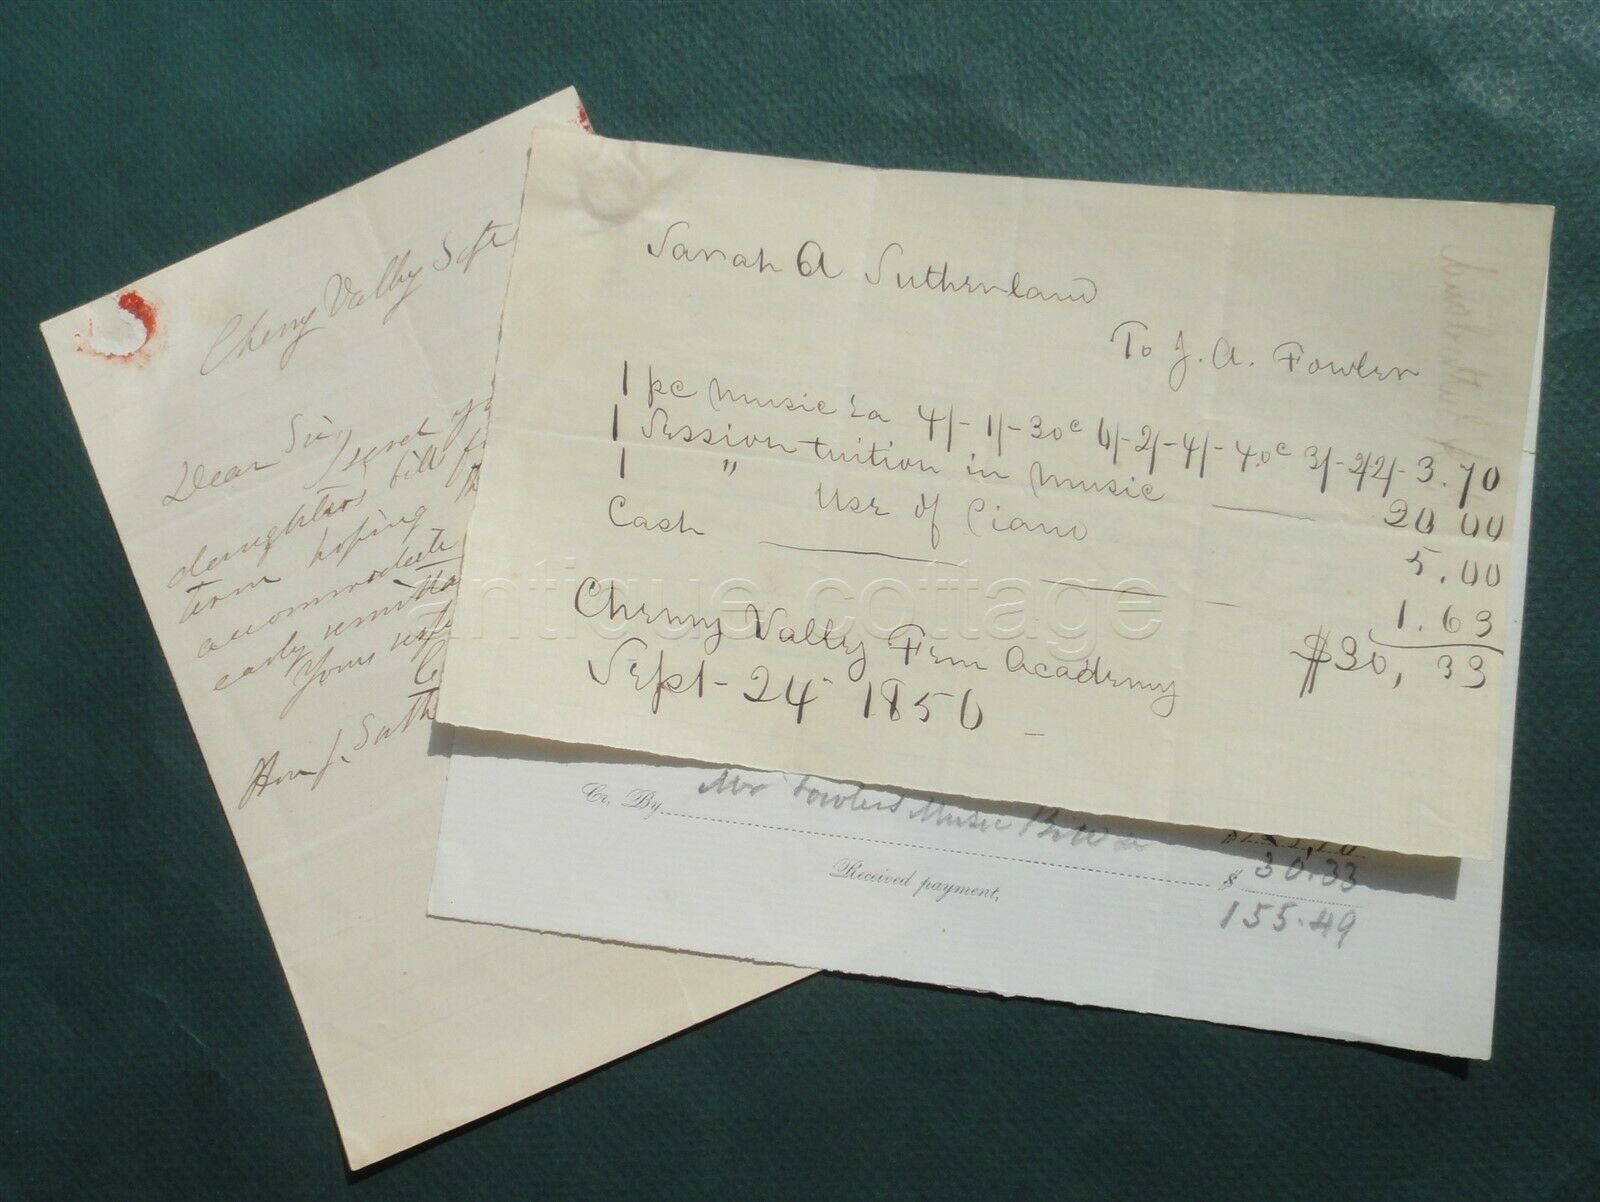 Cherry Valley Sept
Dear Sir,
I send
daughters bill
term hoping
accommodate
early
Yours
Hon J. Suth
Sarah A Sutherland
To J. A. Fowler
1 pc Music Ea 4/- 1/- 30c 6/- 2/- 4/- 40c 3/- 2/ 2/- 3.70
1 Session tuition in Music 20.00
1 " Use of Piano 5.00
Cash 1.63
$30,33
Cherry Valley Fem Academy
Sept- 24 1850
antique cottage
Cr, By Mr Fowlers Music Bill
$ 30.33
Received payment,
155.49